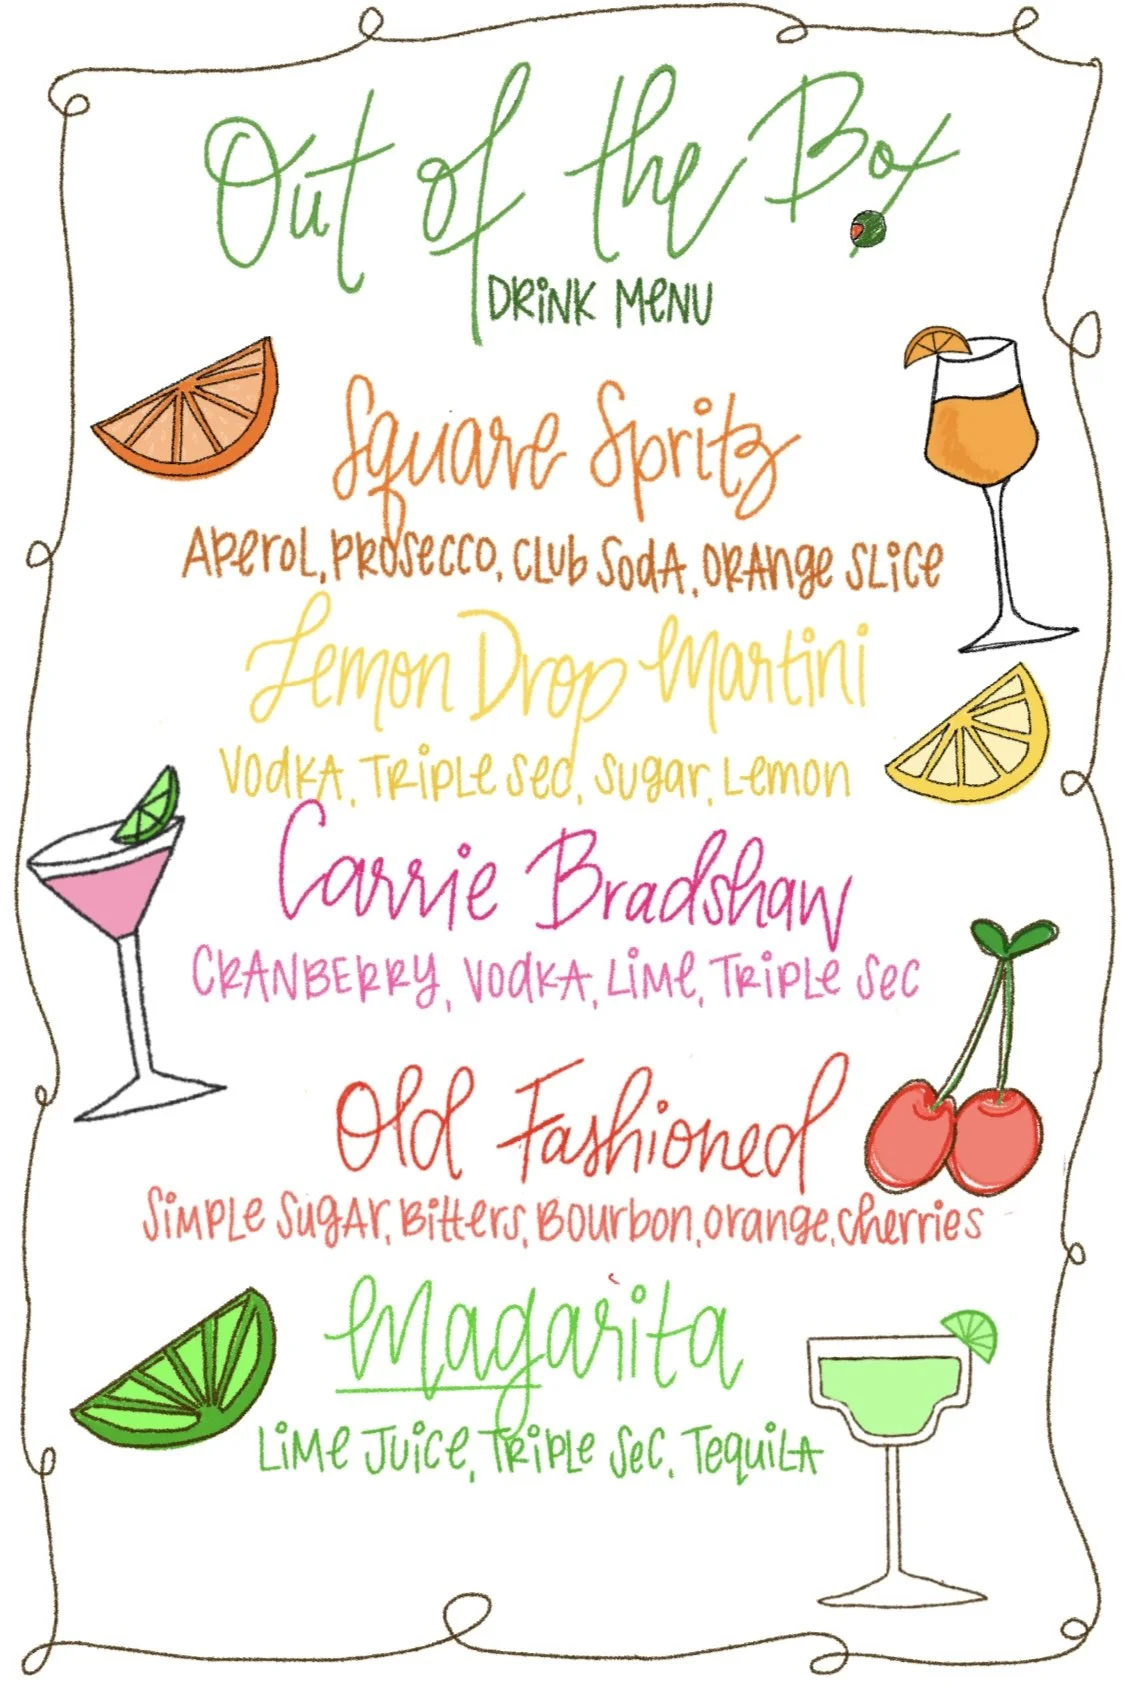 Out of the Box
DRINK MENU
Square Spritz
APEROL, PROSECCO, CLUB SODA, ORANGE SLICE
Lemon Drop Martini
VODKA, TRIPLE SEC, SUGAR, LEMON
Carrie Bradshaw
CRANBERRY, VODKA, LIME, TRIPLE SEC
Old Fashioned
SIMPLE SUGAR, BITTERS, BOURBON, ORANGE, CHERRIES
Magarita
LIME JUICE, TRIPLE SEC, TEQUILA